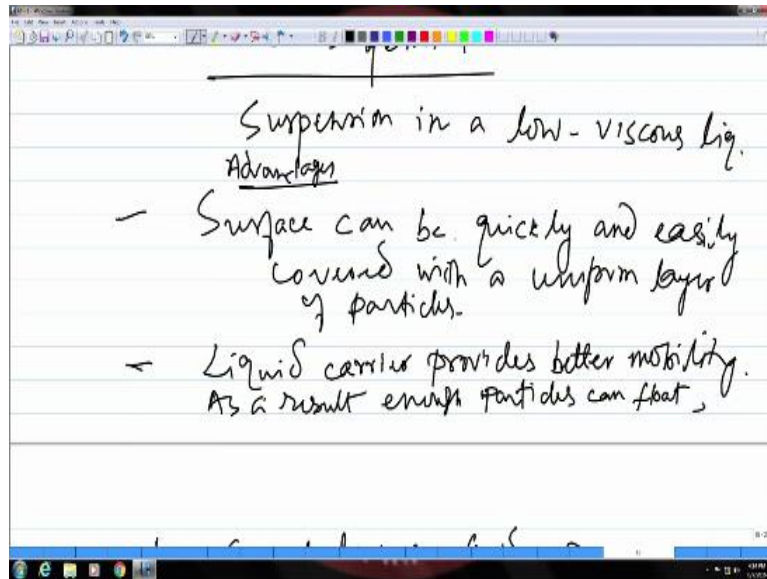 Suspension in a low-viscous liq.
Advantages
- Surface can be quickly and easily
covered with a uniform layer
of particles.
- Liquid carrier provides better mobility.
As a result enough particles can float,